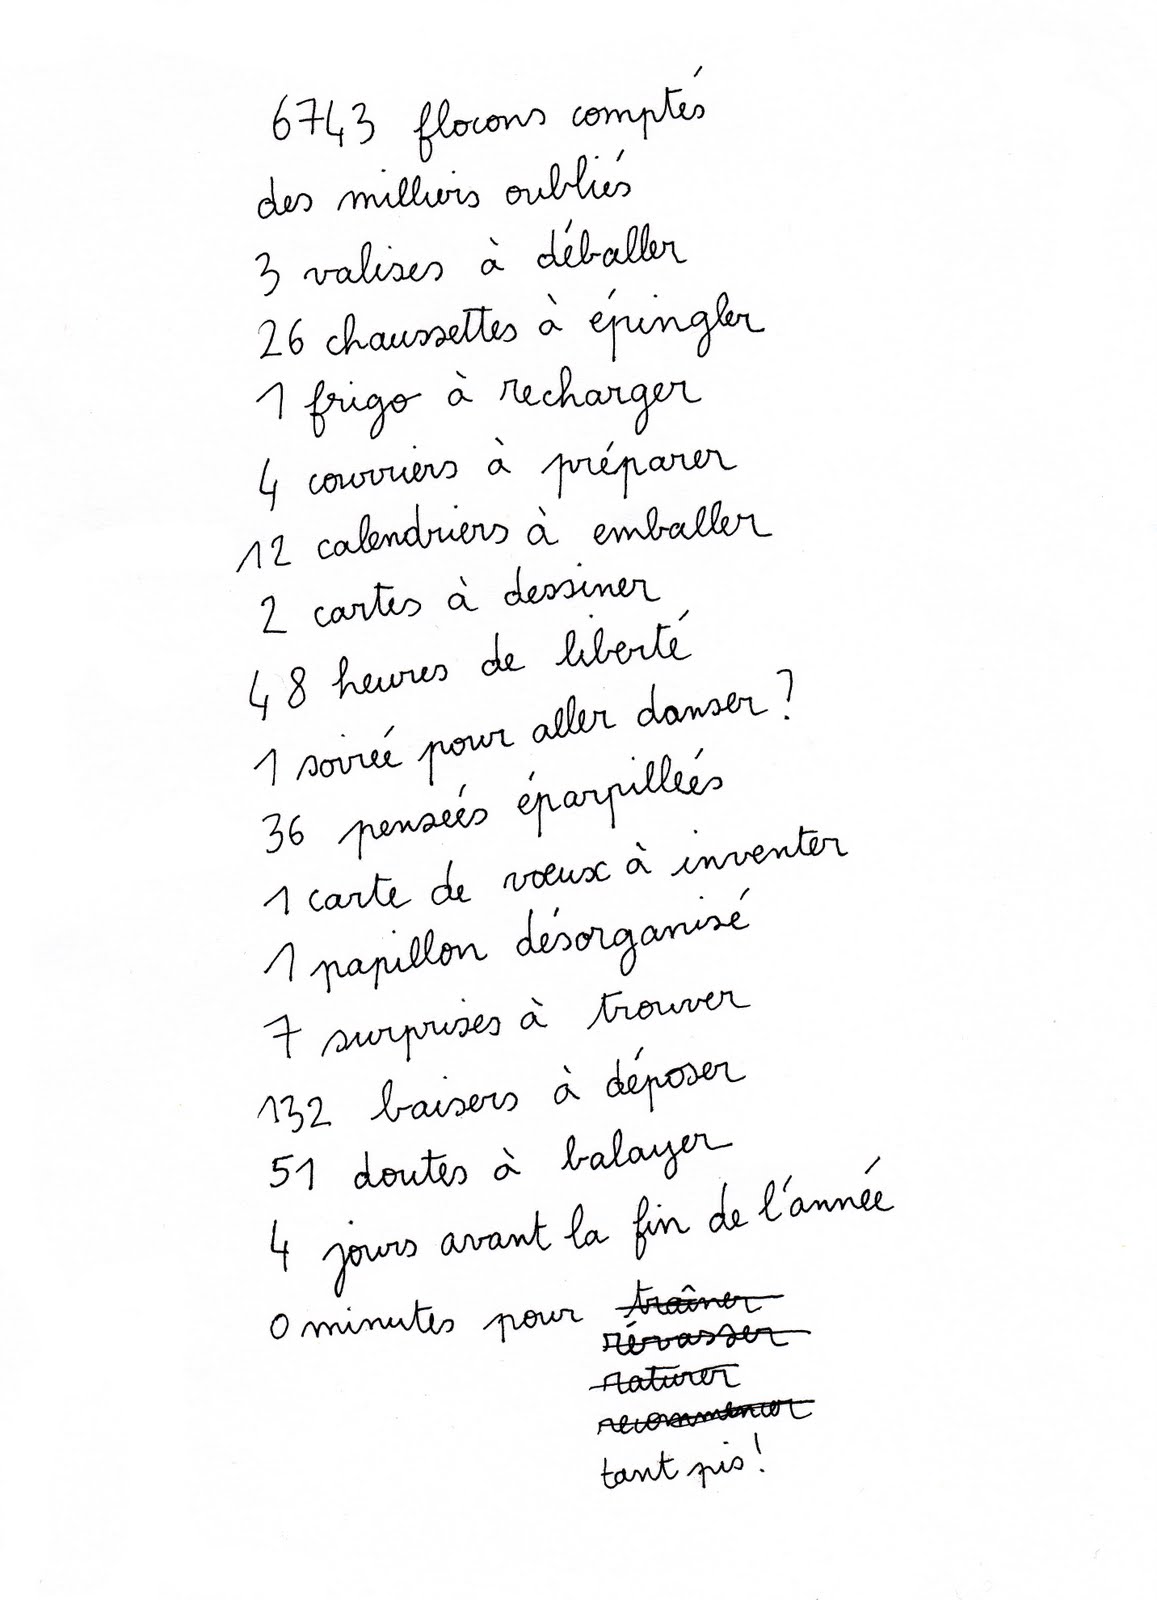 6743 flocons comptés
des milliers oubliés
3 valises à déballer
26 chaussettes à épingler
1 frigo à recharger
4 courriers à préparer
12 calendriers à emballer
2 cartes à dessiner
48 heures de liberté
1 soirée pour aller danser ?
36 pensées éparpillées
1 carte de vœux à inventer
1 papillon désorganisé
7 surprises à trouver
132 baisers à déposer
51 doutes à balayer
4 jours avant la fin de l'année
0 minutes pour traîner
rêvasser
raturer
recommencer
tant pis !